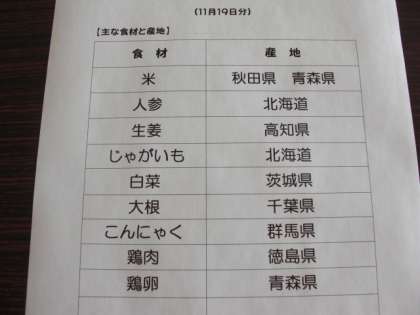 (11月19日分)
【主な食材と産地】
食 材 産 地
米 秋田県 青森県
人参 北海道
生姜 高知県
じゃがいも 北海道
白菜 茨城県
大根 千葉県
こんにゃく 群馬県
鶏肉 徳島県
鶏卵 青森県